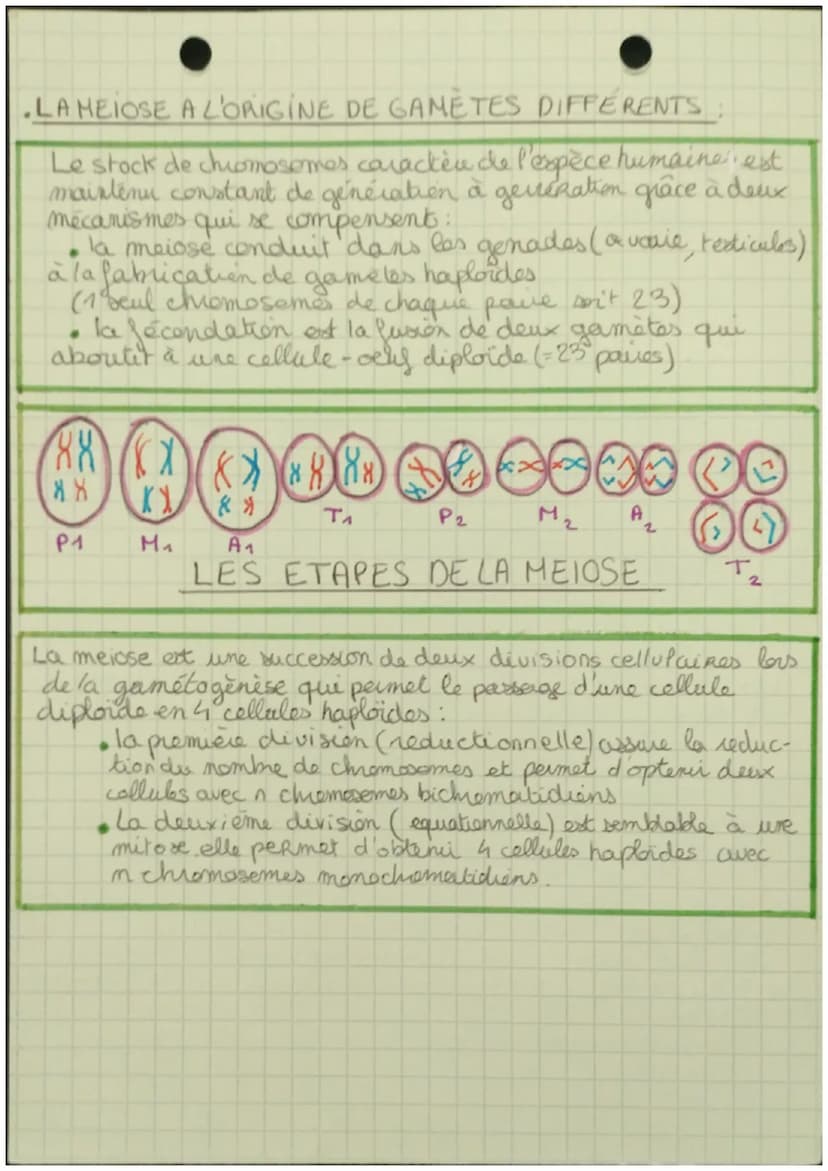 . LA MEIOSE A L'ORIGINE DE GAMÈTES DIFFÉRENTS :
Le stock de chromosomes caractère de l'espèce humaine, est
maintenu constant de génération à génération grâce à deux
mécanismes qui se compensent :
• la meiose conduit dans les genades (ovaire, testicules)
à la fabrication de gamètes haploïdes
(1 seul chromosomes de chaque paire soit 23)
• la fécondation est la fusion de deux gamètes qui
aboutit à une cellule-oeuf diploïde (=23 paires)
P1 M1 A1 T1 P2 M2 A2 T2
LES ETAPES DE LA MEIOSE
La meiose est une succession de deux divisions cellulaires lors
de la gamétogènèse qui permet le passage d'une cellule
diploïde en 4 cellules haploïdes :
• la première division (reductionnelle) assure la reduc-
tion du nombre de chromosomes et permet d'optenir deux
cellules avec n chromosemes bichromatidiens
• La deuxième division (equationnelle) est semblable à une
mitose elle permet d'obtenir 4 cellules haploïdes avec
n chromosemes monochromatidiens.